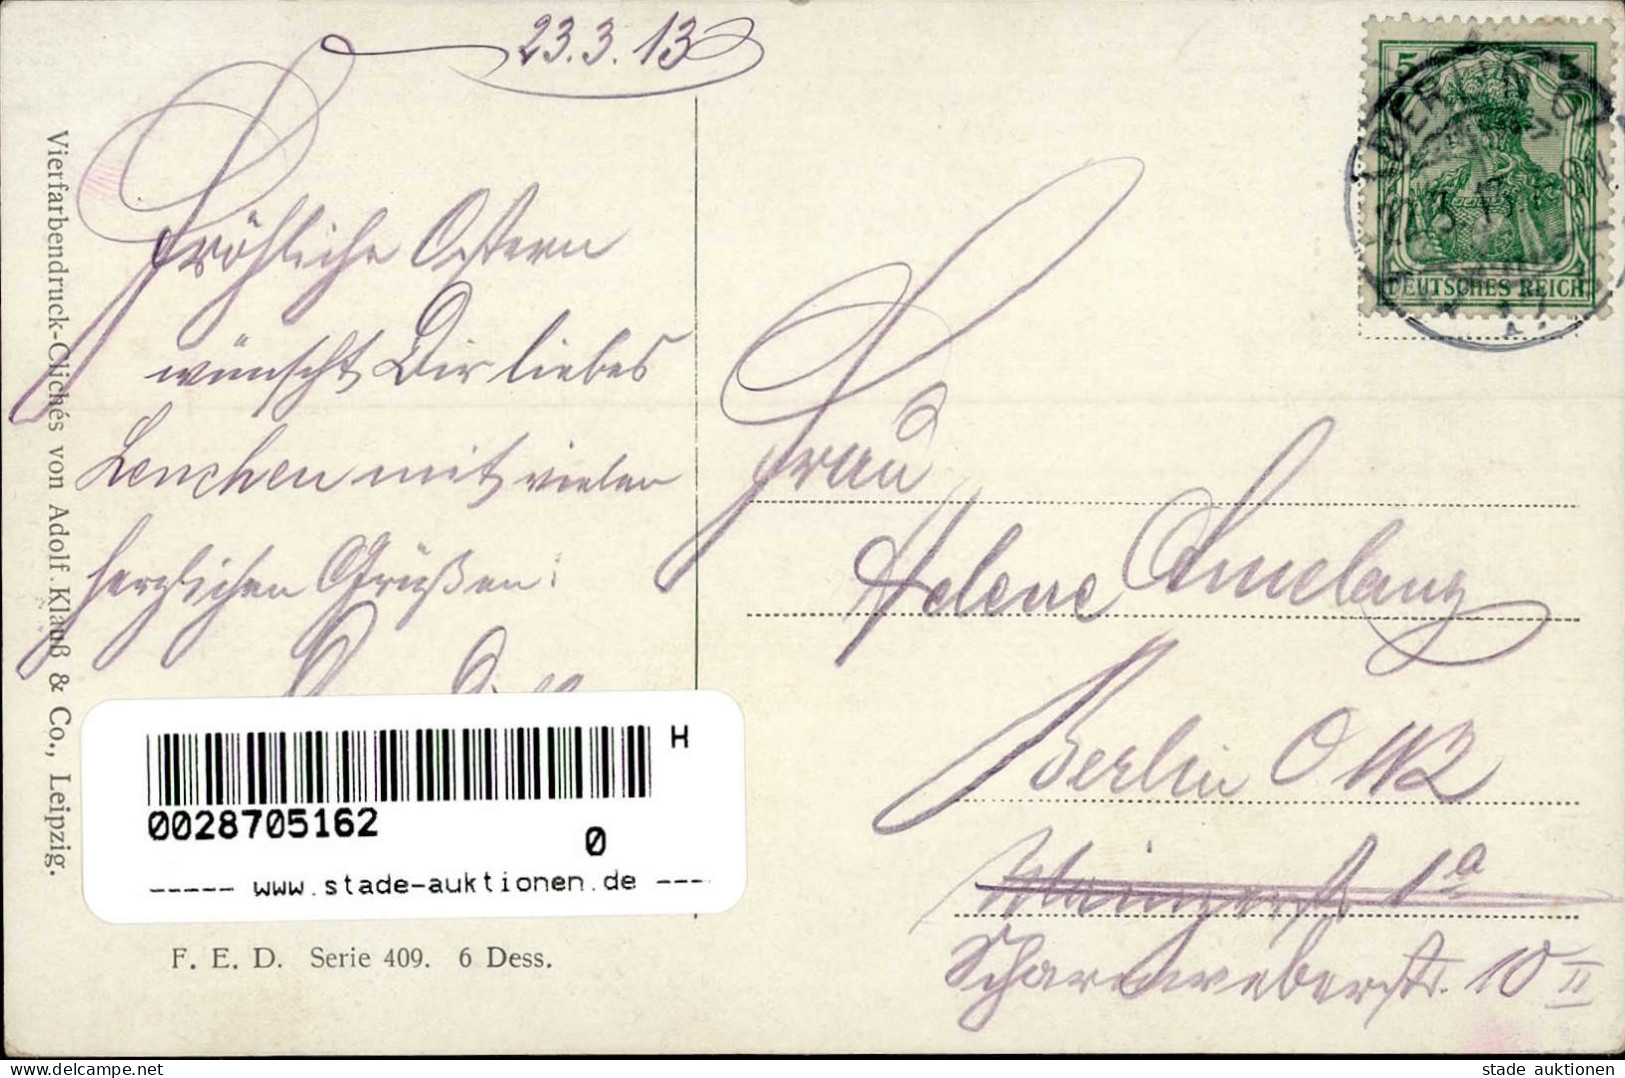 23.3.13
Fröhliche Ostern
wünscht Dir liebes
Lenchen mit vielen
herzlichen Grüßen:
Frau
Helene Amelang
Berlin O 112
Mainzerstr. 1a
Scharnweberstr. 10 II
5 5
BERLIN
DEUTSCHES REICH
Vierfarbendruck-Clichés von Adolf Klauß & Co., Leipzig.
H
0028705162
0
----- www.stade-auktionen.de ----
F. E. D. Serie 409. 6 Dess.
stade auktionen